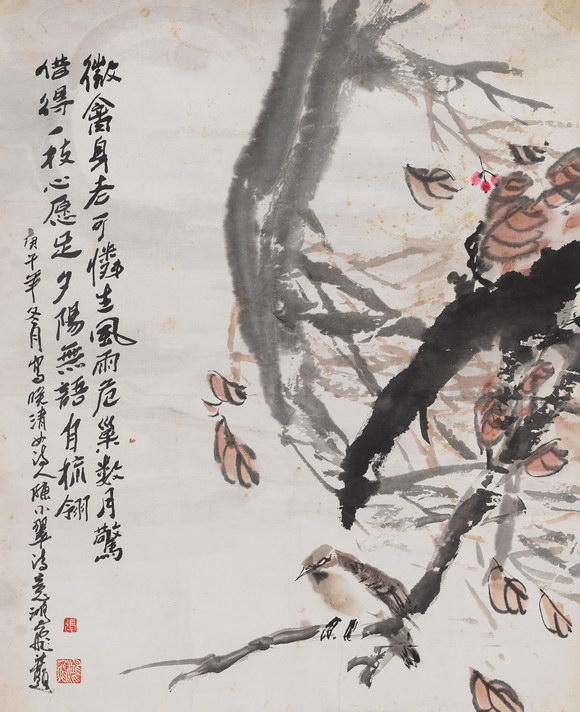 微禽身老可憐生風雨危巢数月驚
借得一枝心愿足夕陽無語自梳翎
庚午年冬月寫晚清女詩人陳小翠詩意鴻飛題